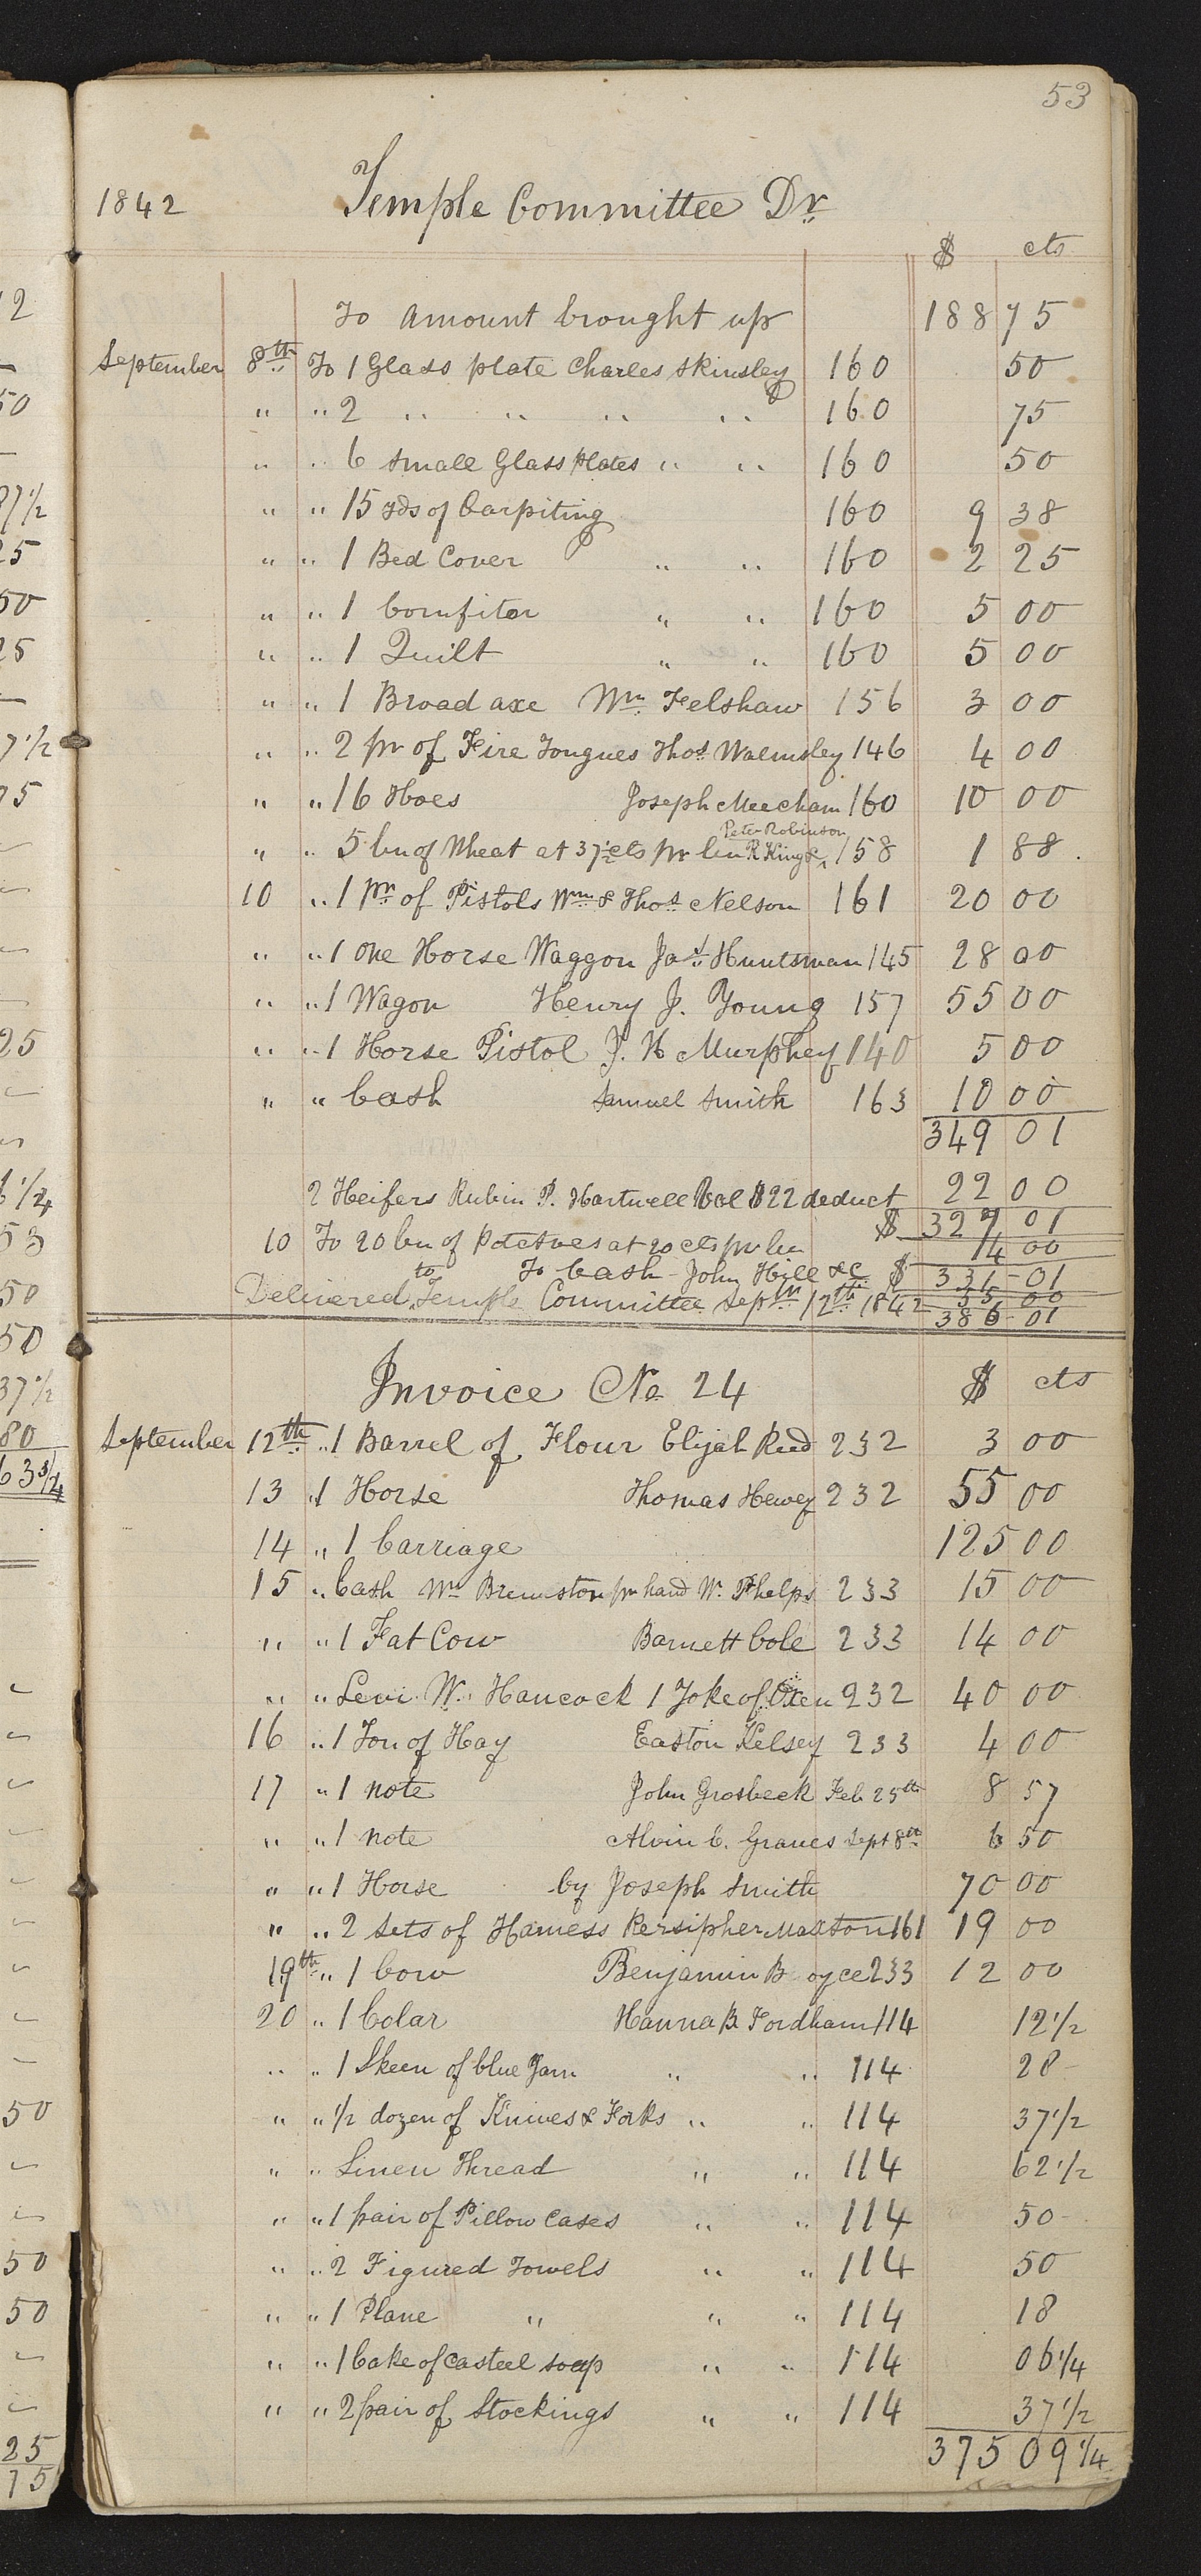 53
1842 Temple Committee Dr
$ cts
To amount brought up 188 75
September 8th To 1 Glass plate Charles Skinsley 160 50
" " 2 " " " " 160 75
" " 6 small Glass plates " " 160 50
" " 15 yds of Carpiting 160 9 38
" " 1 Bed Cover " " 160 2 25
" " 1 Comfiter " " 160 5 00
" " 1 Quilt " " 160 5 00
" " 1 Broad axe Wm Felshaw 156 3 00
" " 2 pr of Fire Tongues Thos Walmsley 146 4 00
" " 16 Hoes Joseph Meecham 160 10 00
Peter Robinson
" " 5 bu of Wheat at 37½ cts pr bu R King & 158 1 88
10 " 1 pr of Pistols Wm & Thos Nelson 161 20 00
" " 1 one Horse Waggon Jas Huntsman 145 28 00
" " 1 Wagon Henry J. Young 157 55 00
" " 1 Horse Pistol J. H Murphey 140 5 00
" " Cash Samuel Smith 163 10 00
349 01
2 Heifers Rubin P. Hartwell Val $22 deduct 22 00
$ 327 01
10 To 20 bu of Potatoes at 20 cts pr bu 14 00
To Cash John Hill &c $ 331-01
35 00
Delivered to Temple Committee Septm 12th 1842 386-01
Invoice No 24 $ cts
September 12th " 1 Barrel of Flour Elijah Reed 232 3 00
13 " 1 Horse Thomas Hewey 232 55 00
14 " 1 Carriage 125 00
15 " Cash Wm pr hand W. Phelps 233 15 00
" " 1 Fat Cow Barnett Cole 233 14 00
" " Levi W. Hancock 1 Yoke of Oxen 232 40 00
16 " 1 Ton of Hay Easton Kelsey 233 4 00
17 " 1 note John Grosbeck Feb 25th 8 57
" " 1 note Alvin C. Graves Sept 8th 6 50
" " 1 Horse by Joseph Smith 70 00
" " 2 Sets of Harness Persipher Maxton 161 19 00
19th " 1 Cow Benjamin B oyce 233 12 00
20 " 1 Colar Hanna B Fordham 114 12½
" " 1 Skeen of blue Yarn " " 114 28
" " ½ dozen of Knives & Forks " " 114 37½
" " Linen Thread " " 114 62½
" " 1 pair of Pillow Cases " " 114 50
" " 2 Figured Towels " " 114 50
" " 1 Plane " " " 114 18
" " 1 Cake of Casteel soap " " 114 06¼
" " 2 pair of Stockings " " 114 37½
375 09¼